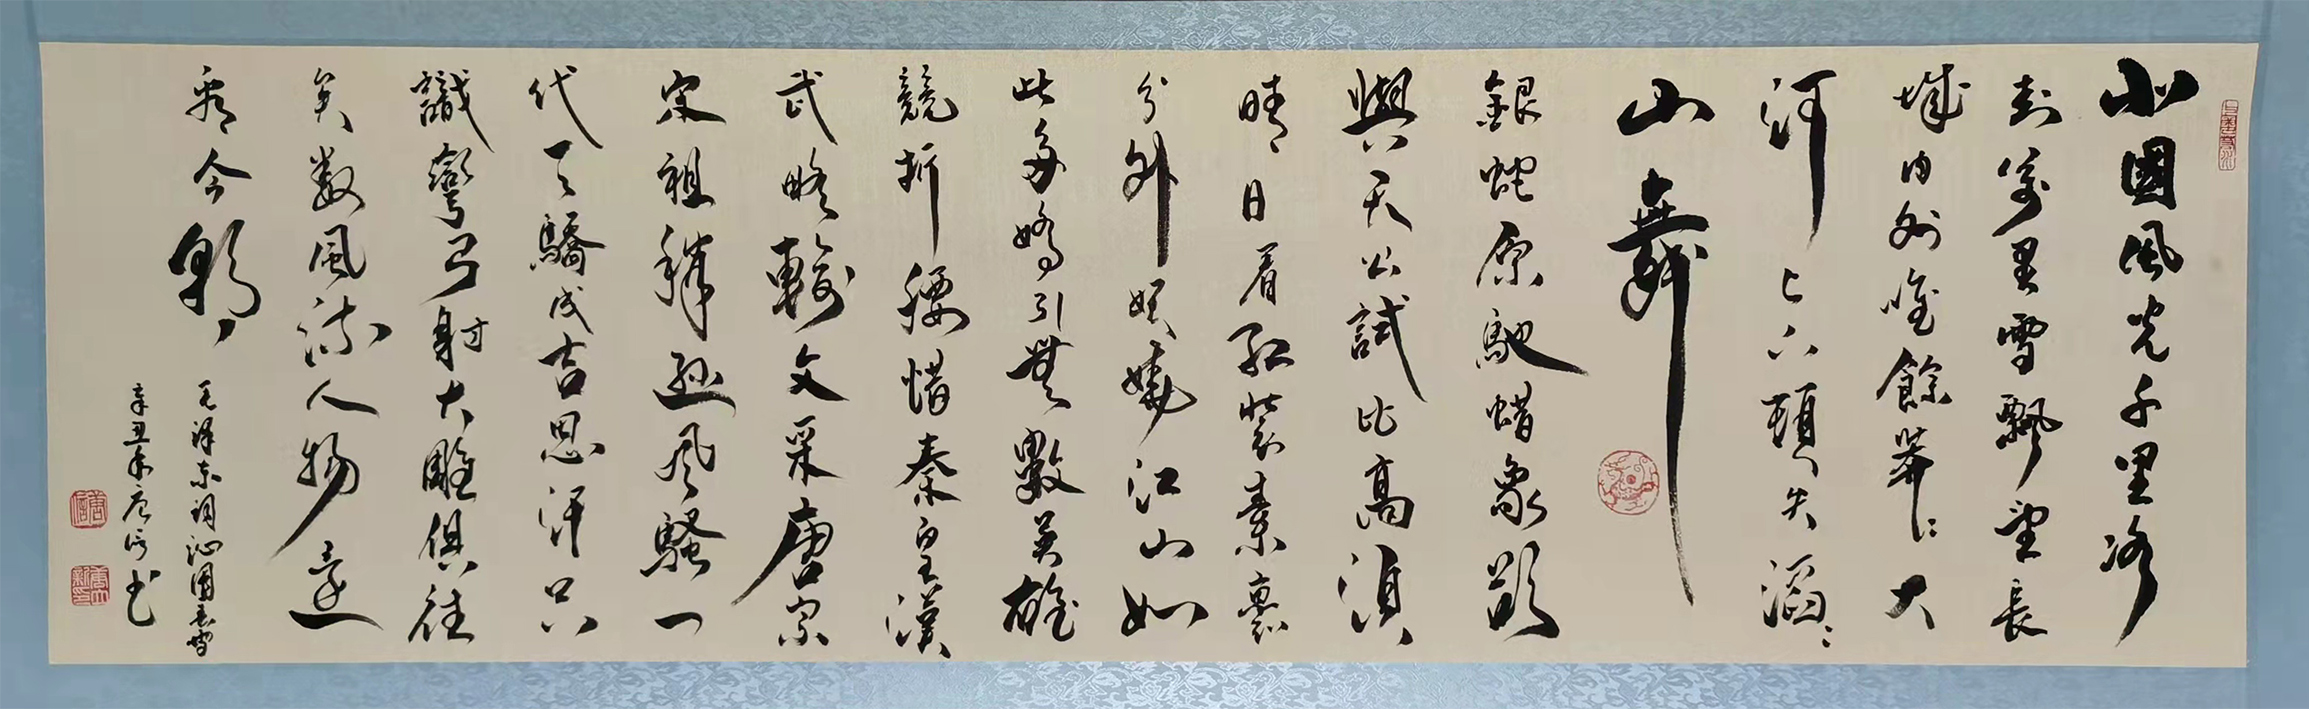 北國風光千里冰
封萬里雪飄望長
城内外惟餘莽〻大
河上下頓失滔〻
山舞
銀蛇原馳蜡象欲
與天公試比高須
晴日看紅裝素裹
分外妖嬈江山如
此多嬌引無數英雄
競折腰惜秦皇漢
武略輸文采唐宗
宋祖稍遜風騷一
代天驕成吉思汗只
識彎弓射大雕俱往
矣数風流人物還
看今朝
毛澤东詞沁園春雪
辛丑年唐信书